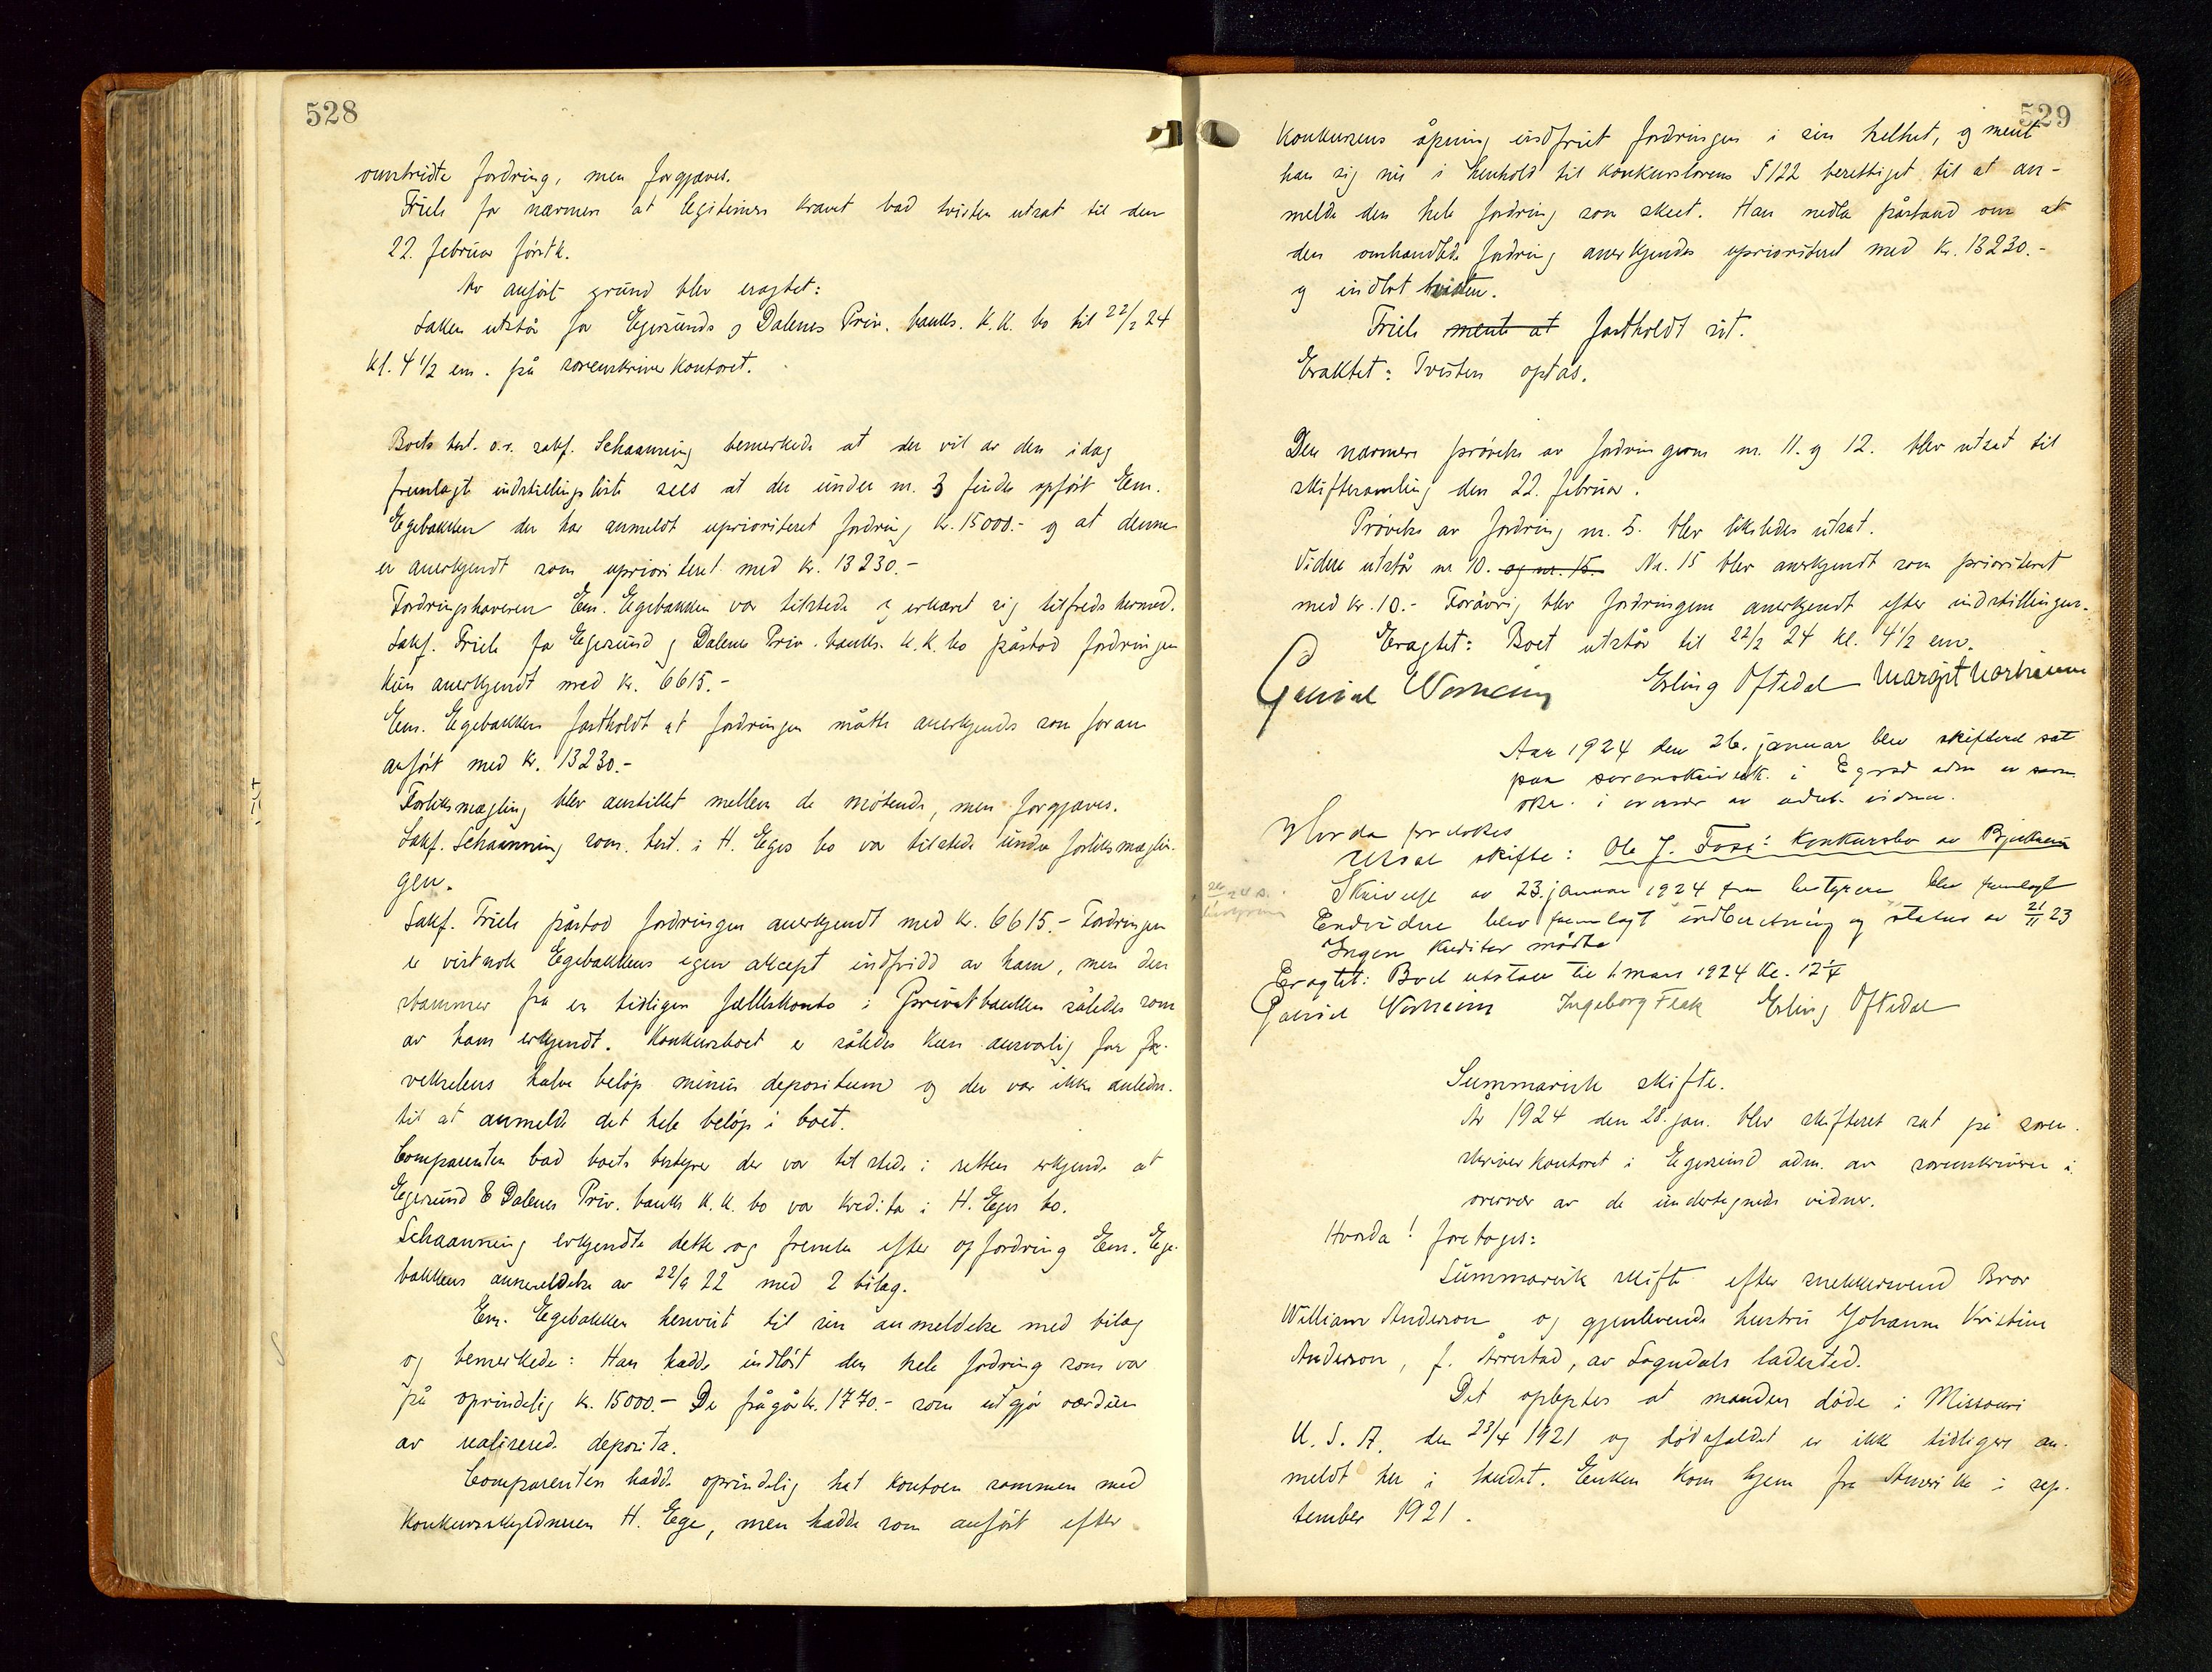 528
omstridte fordring, men forgjæves.
Friele for nærmere at legitimere kravet bad tvisten utsat til den
22. februar førstk.
Av anført grund blev eragtet:
Saken utstår for Egersunds og Dalenes Priv. banks. K.K. bo til 22/2 24
kl. 4 1/2 em. på sorenskriverkontoret.
Boets best. o.r. sakf. Schaanning bemerkede at der vil av den idag
fremlagte indstillingsliste sees at der under nr. 3 findes opført Em.
Egebakken der har anmeldt uprioriteret fordring kr. 15000.- og at denne
er anerkjendt som uprioriteret med kr. 13230.-
Fordringshaveren Em. Egebakken var tilstede og erklæret sig tilfreds hermed.
Sakf. Friele for Egersund og Dalenes Priv. banks. K.K. bo påstod fordringen
kun anerkjendt med kr. 6615.-
Em. Egebakken fastholdt at fordringen måtte anerkjendes som foran
anført med kr. 13230.-
Forliksmægling blev anstillet mellem de møtende, men forgjæves.
Sakf. Schaanning som best. i H. Eges bo var tilstede under forliksmæglin-
gen.
Sakf. Friele påstod fordringen anerkjendt med kr. 6615.- Fordringen
er vistnok Egebakkens egen aksept indfridd av ham, men den
stammer fra en tidligere felleskonto i Privatbanken således som
av ham erkjendt. Konkursboet er således kun ansvarlig for
vekselens halve beløp minus depositum og der var ikke anledn.
til at anmelde det hele beløp i boet.
Comparenten bad boets bestyrer der var tilstede i retten erkjende at
Egersund & Dalenes Priv. banks K.K. bo var kreditor i H. Eges bo.
Schaanning erkjendte dette og fremla efter opfordring Em. Ege-
bakkens anmeldelse av 22/9 22 med 2 bilag.
Em. Egebakken henviste til sin anmeldelse med bilag
og bemerkede: Han hadde indløst den hele fordring som var
på oprindelig kr. 15000.- Der frågår kr. 1770.- som utgjør værdien
av realiserede deposita.
Comparenten hadde oprindelig hat kontoen sammen med
konkursskyldneren H. Ege, men hadde som anført efter
529
konkursens åpning indfriet fordringen i sin helhet, og mente
han sig nu i henhold til konkurslovens § 122 berettiget til at an-
melde den hele fordring som skeet. Han nedla påstand om at
den omhandlede fordring anerkjendes uprioriteret med kr. 13230.-
og indlot tvisten.
Friele mente at fastholdt sit.
Eraktet: Tvisten optas.
Den nærmere prøvelse av fordringerne nr. 11. og 12. blev utsat til
skiftesamling den 22. februar.
Prøvelse av fordring nr. 5. blev likeledes utsat.
Videre utstår nr 10. og nr. 15. Nr. 15 blev anerkjendt som prioriteret
med kr. 10.- Forøvrig blev fordringene anerkjendt efter indstillingen.
Eragtet: Boet utstår til 22/2 24 kl. 4 1/2 em.
Gabriel Norheim Erling Oftedal Margit Norheim
Aar 1924 den 26. januar blev skifteret sat
paa sorenskriverk. i Egersd adm av soren
skr. i overvær av vidner.
Hvorda foretokes
Utsat skifte: Ole J. Fossé konkursbo av Bjerkreim
Skrivelse av 23. januar 1924 fra bestyreren blev fremlagt
Endvidere blev fremlagt indberetning og status av 21/11 23
Ingen kreditor mødte
Eragtet: Boet utstaar til 1 mars 1924 kl. 12 1/4
Gabriel Norheim Ingeborg Feak Erling Oftedal
Summarisk skifte.
År 1924 den 28. jan. blev skifteret sat på soren-
skriverkontoret i Egersund adm. av sorenskriveren i
overvær av de undertegnede vidner.
Hvorda! foretoges:
Summarisk skifte efter snekkersvend Bror
William Anderson og gjenlevende hustru Johanne Kristine
Anderson, f. Årrestad, av Sogndals ladested.
Det oplystes at manden døde i Missouri
U.S.A. den 23/4 1921 og dødsfaldet er ikke tidligere an-
meldt her i landet. Enken kom hjem fra Amerika i sep-
tember 1921.